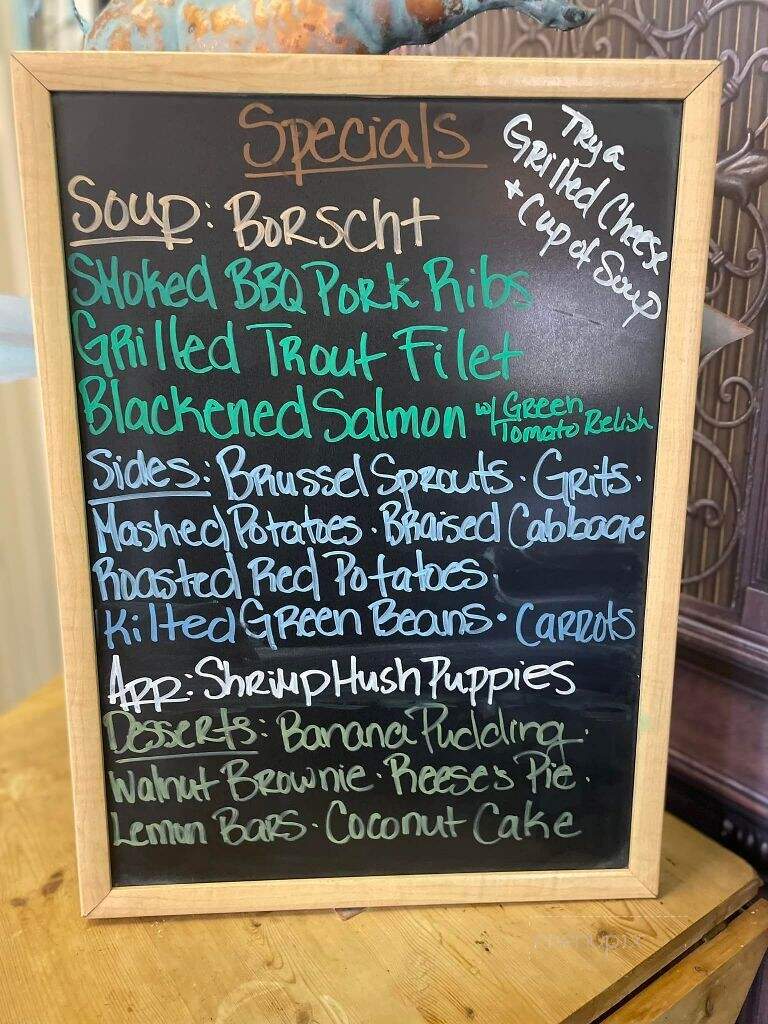 Specials
Try a
Grilled Cheese
+ Cup of Soup
Soup: Borscht
Smoked BBQ Pork Ribs
Grilled Trout Filet
Blackened Salmon w/ Green
Tomato Relish
Sides: Brussel Sprouts · Grits ·
Mashed Potatoes · Braised Cabbage
Roasted Red Potatoes ·
Kilted Green Beans · Carrots
App: Shrimp Hush Puppies
Desserts: Banana Pudding ·
Walnut Brownie · Reese's Pie ·
Lemon Bars · Coconut Cake
menupix